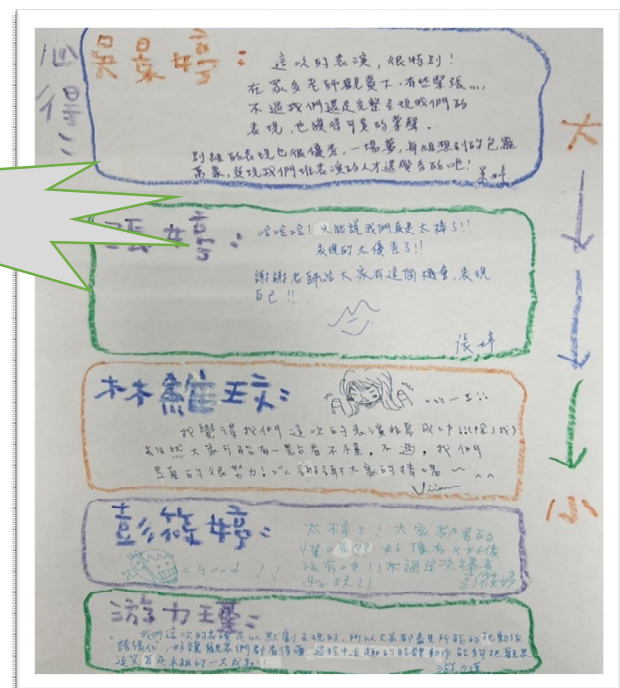 心得：
吳晏婷：
這次的表演，很特別！
在眾多老師觀賞下，有些緊張....
不過我們還是完整呈現我們的
表現，也獲得可貴的掌聲。
別組的表現也很優秀，一場夢，每組想到的包羅
萬象，發現我們班表演的人才還蠻多的吧！
張婷：
哈哈哈！只能說我們真是太棒了!!
表現的太優秀了!!
謝謝老師給大家有這個機會，表現
自己!!
張婷
林維玟：
我覺得我們這次的表演非常成功!!(除了我)
雖然大家可能有一點看不懂，不過，我們
是真的很努力! 謝謝大家的捧場~
Vivian
彭筱婷：
太棒了！大家都看的
懂
好像有
好像
沒有
不過這次
好玩!!
彭筱婷
<Good !!
游力瑾：
我們這次的表演是以默劇呈現的，所以大家都盡見所能的把動作
誇張化，好讓觀眾們都看得懂，過程中逗趣的肢體動作能夠把觀眾
逗笑
本組的一大成就!!
大
小